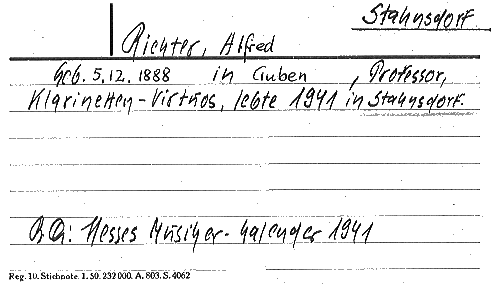 Stahnsdorf
Richter, Alfred
Geb. 5.12.1888 in Guben, Professor,
Klarinetten-Virtuos, lebte 1941 in Stahnsdorf.
BQ: Hesses Musiker-Kalender 1941
Reg. 10. Stichnote. 1. 50. 232000. A. 803. S. 4062